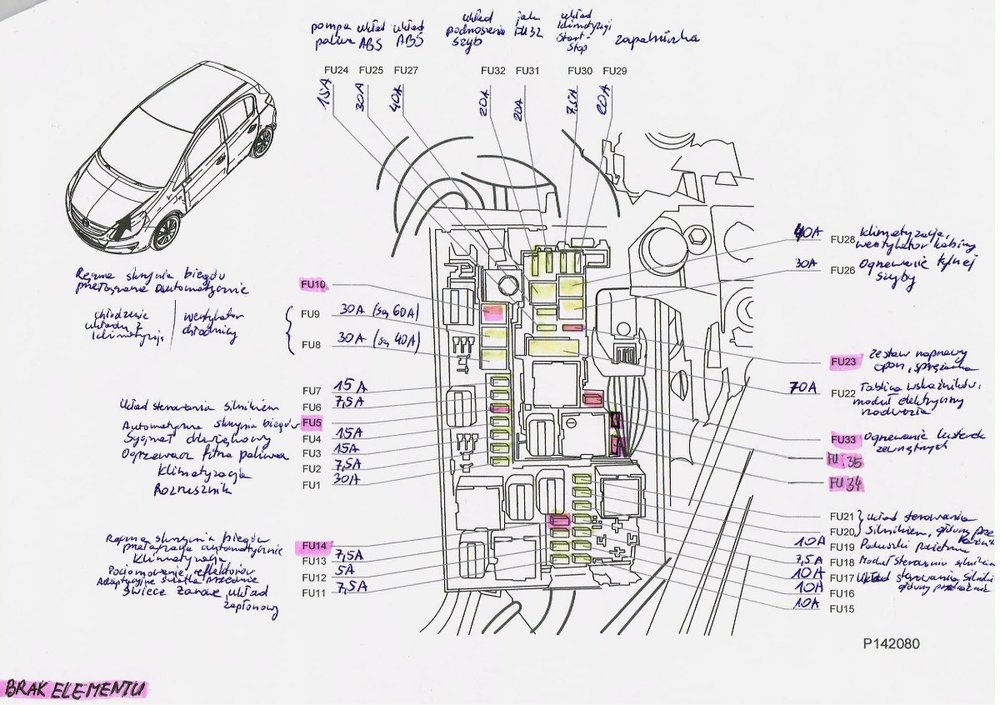 pompa paliwa
układ ABS
układ ABS
układ podnoszenia szyb
jak FU32
układ klimatyzacji Start-Stop
zapalniczka
FU24 FU25 FU27 FU32 FU31 FU30 FU29
15A 30A 40A 20A 20A 7,5A 20A
40A FU28 klimatyzacja, wentylator kabiny
30A FU26 Ogrzewanie tylnej szyby
Ręczna skrzynia biegów
przełączana automatycznie
FU10
chłodzenie układu z klimatyzacją
wentylator chłodnicy
FU9 30A (są 60A)
FU8 30A (są 40A)
FU23 zestaw naprawy opon, sprężarka
70A FU22 Tablica wskaźników, moduł elektryczny nadwozia
FU7 15A
Układ sterowania silnikiem FU6 7,5A
Automatyczna skrzynia biegów FU5
Sygnał dźwiękowy FU4 15A
Ogrzewacz filtra paliwa FU3 15A
Klimatyzacja FU2 7,5A
Rozrusznik FU1 30A
FU33 Ogrzewanie lusterek zewnętrznych
FU 35
FU 34
FU21 układ sterowania
FU20 silnikiem, główny
10A FU19 Poduszki
7,5A FU18 Moduł sterowania silnikiem
10A FU17 Układ sterowania
10A FU16 główny przekaźnik
10A FU15
Ręczna skrzynia biegów
przełączana automatycznie FU14
Klimatyzacja FU13 7,5A
Poziomowanie reflektorów FU12 5A
Adaptacyjne światła przednie
świece żarowe układ zapłonowy FU11 7,5A
P142080
BRAK ELEMENTU